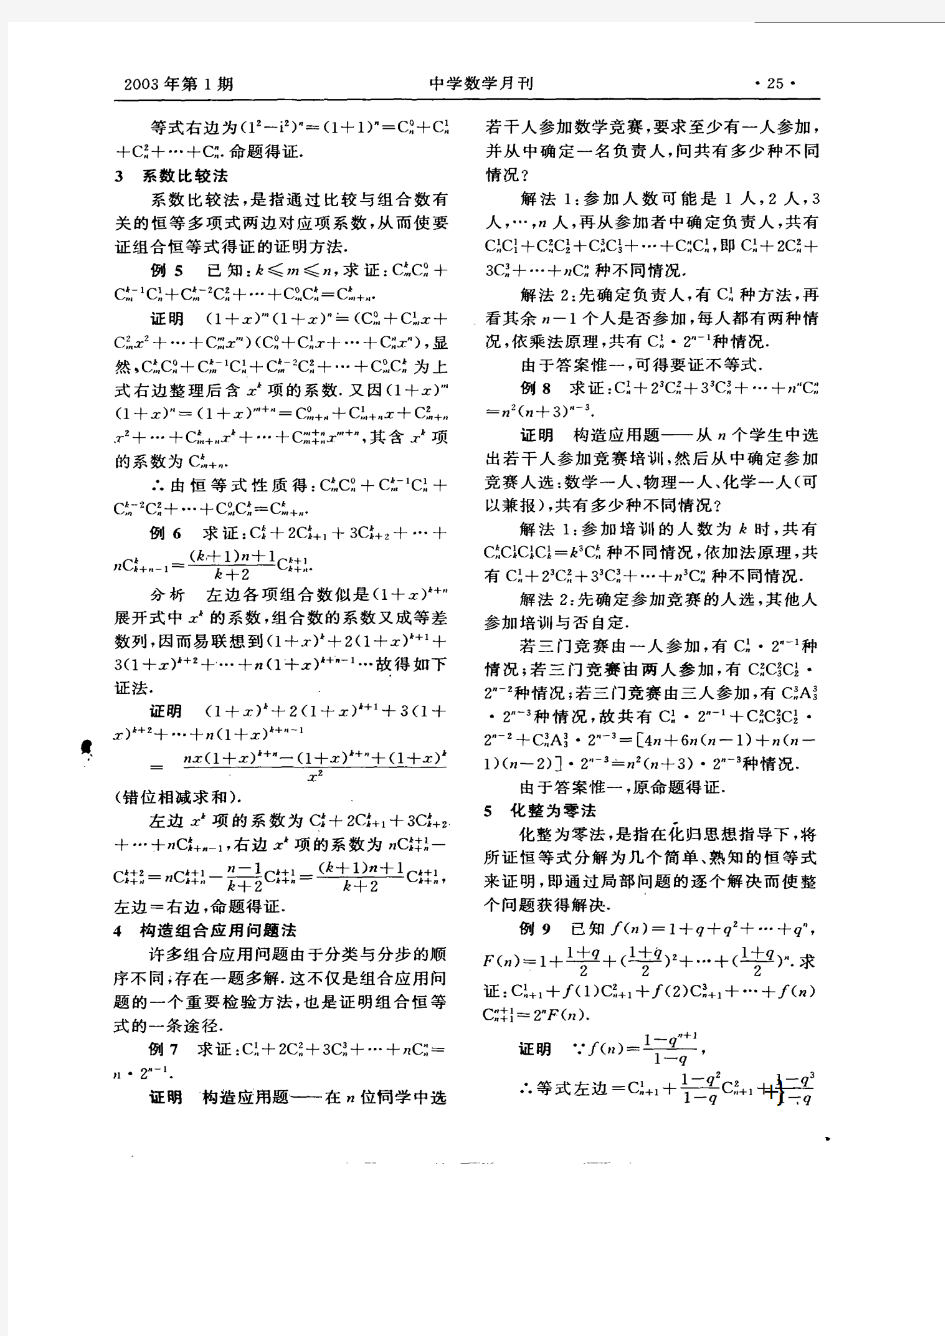 2003 年第 1 期
中学数学月刊
· 25 ·
等式右边为(1²−i²)ⁿ=(1+1)ⁿ=C⁰ₙ+C¹ₙ
+C²ₙ+⋯+Cⁿₙ. 命题得证.
3 系数比较法
系数比较法,是指通过比较与组合数有
关的恒等多项式两边对应项系数,从而使要
证组合恒等式得证的证明方法.
例 5 已知:k≤m≤n,求证:C_m^k C_n^0+
C_m^{k-1}C_n^1+C_m^{k-2}C_n^2+⋯+C_m^0 C_n^k=C_{m+n}^k.
证明 (1+x)^m(1+x)^n=(C_m^0+C_m^1x+
C_m^2x²+⋯+C_m^mx^m)(C_n^0+C_n^1x+⋯+C_n^nx^n),显
然,C_m^kC_n^0+C_m^{k-1}C_n^1+C_m^{k-2}C_n^2+⋯+C_m^0C_n^k 为上
式右边整理后含 x^k 项的系数. 又因(1+x)^m
(1+x)^n=(1+x)^{m+n}=C_{m+n}^0+C_{m+n}^1x+C_{m+n}^2
x²+⋯+C_{m+n}^kx^k+⋯+C_{m+n}^{m+n}x^{m+n},其含 x^k 项
的系数为 C_{m+n}^k.
∴由恒等式性质得:C_m^kC_n^0+C_m^{k-1}C_n^1+
C_m^{k-2}C_n^2+⋯+C_m^0C_n^k=C_{m+n}^k.
例 6 求证:C_k^k+2C_{k+1}^k+3C_{k+2}^k+⋯+
nC_{k+n-1}^k=\frac{(k+1)n+1}{k+2}C_{k+n}^{k+1}.
分析 左边各项组合数似是(1+x)^{k+n}
展开式中 x^k 的系数,组合数的系数又成等差
数列,因而易联想到(1+x)^k+2(1+x)^{k+1}+
3(1+x)^{k+2}+⋯+n(1+x)^{k+n-1}⋯故得如下
证法.
证明 (1+x)^k+2(1+x)^{k+1}+3(1+
x)^{k+2}+⋯+n(1+x)^{k+n-1}
=\frac{nx(1+x)^{k+n}-(1+x)^{k+n}+(1+x)^k}{x²}
(错位相减求和).
左边 x^k 项的系数为 C_k^k+2C_{k+1}^k+3C_{k+2}^k
+⋯+nC_{k+n-1}^k,右边 x^k 项的系数为 nC_{k+n}^{k+1}-
C_{k+n}^{k+2}=nC_{k+n}^{k+1}-\frac{n-1}{k+2}C_{k+n}^{k+1}=\frac{(k+1)n+1}{k+2}C_{k+n}^{k+1},
左边=右边,命题得证.
4 构造组合应用问题法
许多组合应用问题由于分类与分步的顺
序不同,存在一题多解. 这不仅是组合应用问
题的一个重要检验方法,也是证明组合恒等
式的一条途径.
例 7 求证:C_n^1+2C_n^2+3C_n^3+⋯+nC_n^n=
n·2^{n-1}.
证明 构造应用题——在 n 位同学中选
若干人参加数学竞赛,要求至少有一人参加,
并从中确定一名负责人,问共有多少种不同
情况?
解法 1:参加人数可能是 1 人,2 人,3
人,⋯,n 人,再从参加者中确定负责人,共有
C_n^1C_1^1+C_n^2C_2^1+C_n^3C_3^1+⋯+C_n^nC_n^1,即 C_n^1+2C_n^2+
3C_n^3+⋯+nC_n^n 种不同情况.
解法 2:先确定负责人,有 C_n^1 种方法,再
看其余 n−1 个人是否参加,每人都有两种情
况,依乘法原理,共有 C_n^1·2^{n-1}种情况.
由于答案惟一,可得要证不等式.
例 8 求证:C_n^1+2³C_n^2+3³C_n^3+⋯+n^nC_n^n
=n²(n+3)^{n-3}.
证明 构造应用题——从 n 个学生中选
出若干人参加竞赛培训,然后从中确定参加
竞赛人选:数学一人、物理一人、化学一人(可
以兼报),共有多少种不同情况?
解法 1:参加培训的人数为 k 时,共有
C_n^kC_k^1C_k^1C_k^1=k³C_n^k 种不同情况,依加法原理,共
有 C_n^1+2³C_n^2+3³C_n^3+⋯+n³C_n^n 种不同情况.
解法 2:先确定参加竞赛的人选,其他人
参加培训与否自定.
若三门竞赛由一人参加,有 C_n^1·2^{n-1}种
情况;若三门竞赛由两人参加,有 C_n^2C_3^2C_2^1·
2^{n-2}种情况;若三门竞赛由三人参加,有 C_n^3A_3^3
·2^{n-3}种情况,故共有 C_n^1·2^{n-1}+C_n^2C_3^2C_2^1·
2^{n-2}+C_n^3A_3^3·2^{n-3}=[4n+6n(n−1)+n(n−
1)(n−2)]·2^{n-3}=n²(n+3)·2^{n-3}种情况.
由于答案惟一,原命题得证.
5 化整为零法
化整为零法,是指在化归思想指导下,将
所证恒等式分解为几个简单、熟知的恒等式
来证明,即通过局部问题的逐个解决而使整
个问题获得解决.
例 9 已知 f(n)=1+q+q²+⋯+qⁿ,
F(n)=1+\frac{1+q}{2}+(\frac{1+q}{2})²+⋯+(\frac{1+q}{2})ⁿ. 求
证:C_{n+1}^1+f(1)C_{n+1}^2+f(2)C_{n+1}^3+⋯+f(n)
C_{n+1}^{n+1}=2ⁿF(n).
证明 ∵f(n)=\frac{1-q^{n+1}}{1-q},
∴等式左边=C_{n+1}^1+\frac{1-q²}{1-q}C_{n+1}^2+\frac{1-q³}{1-q}